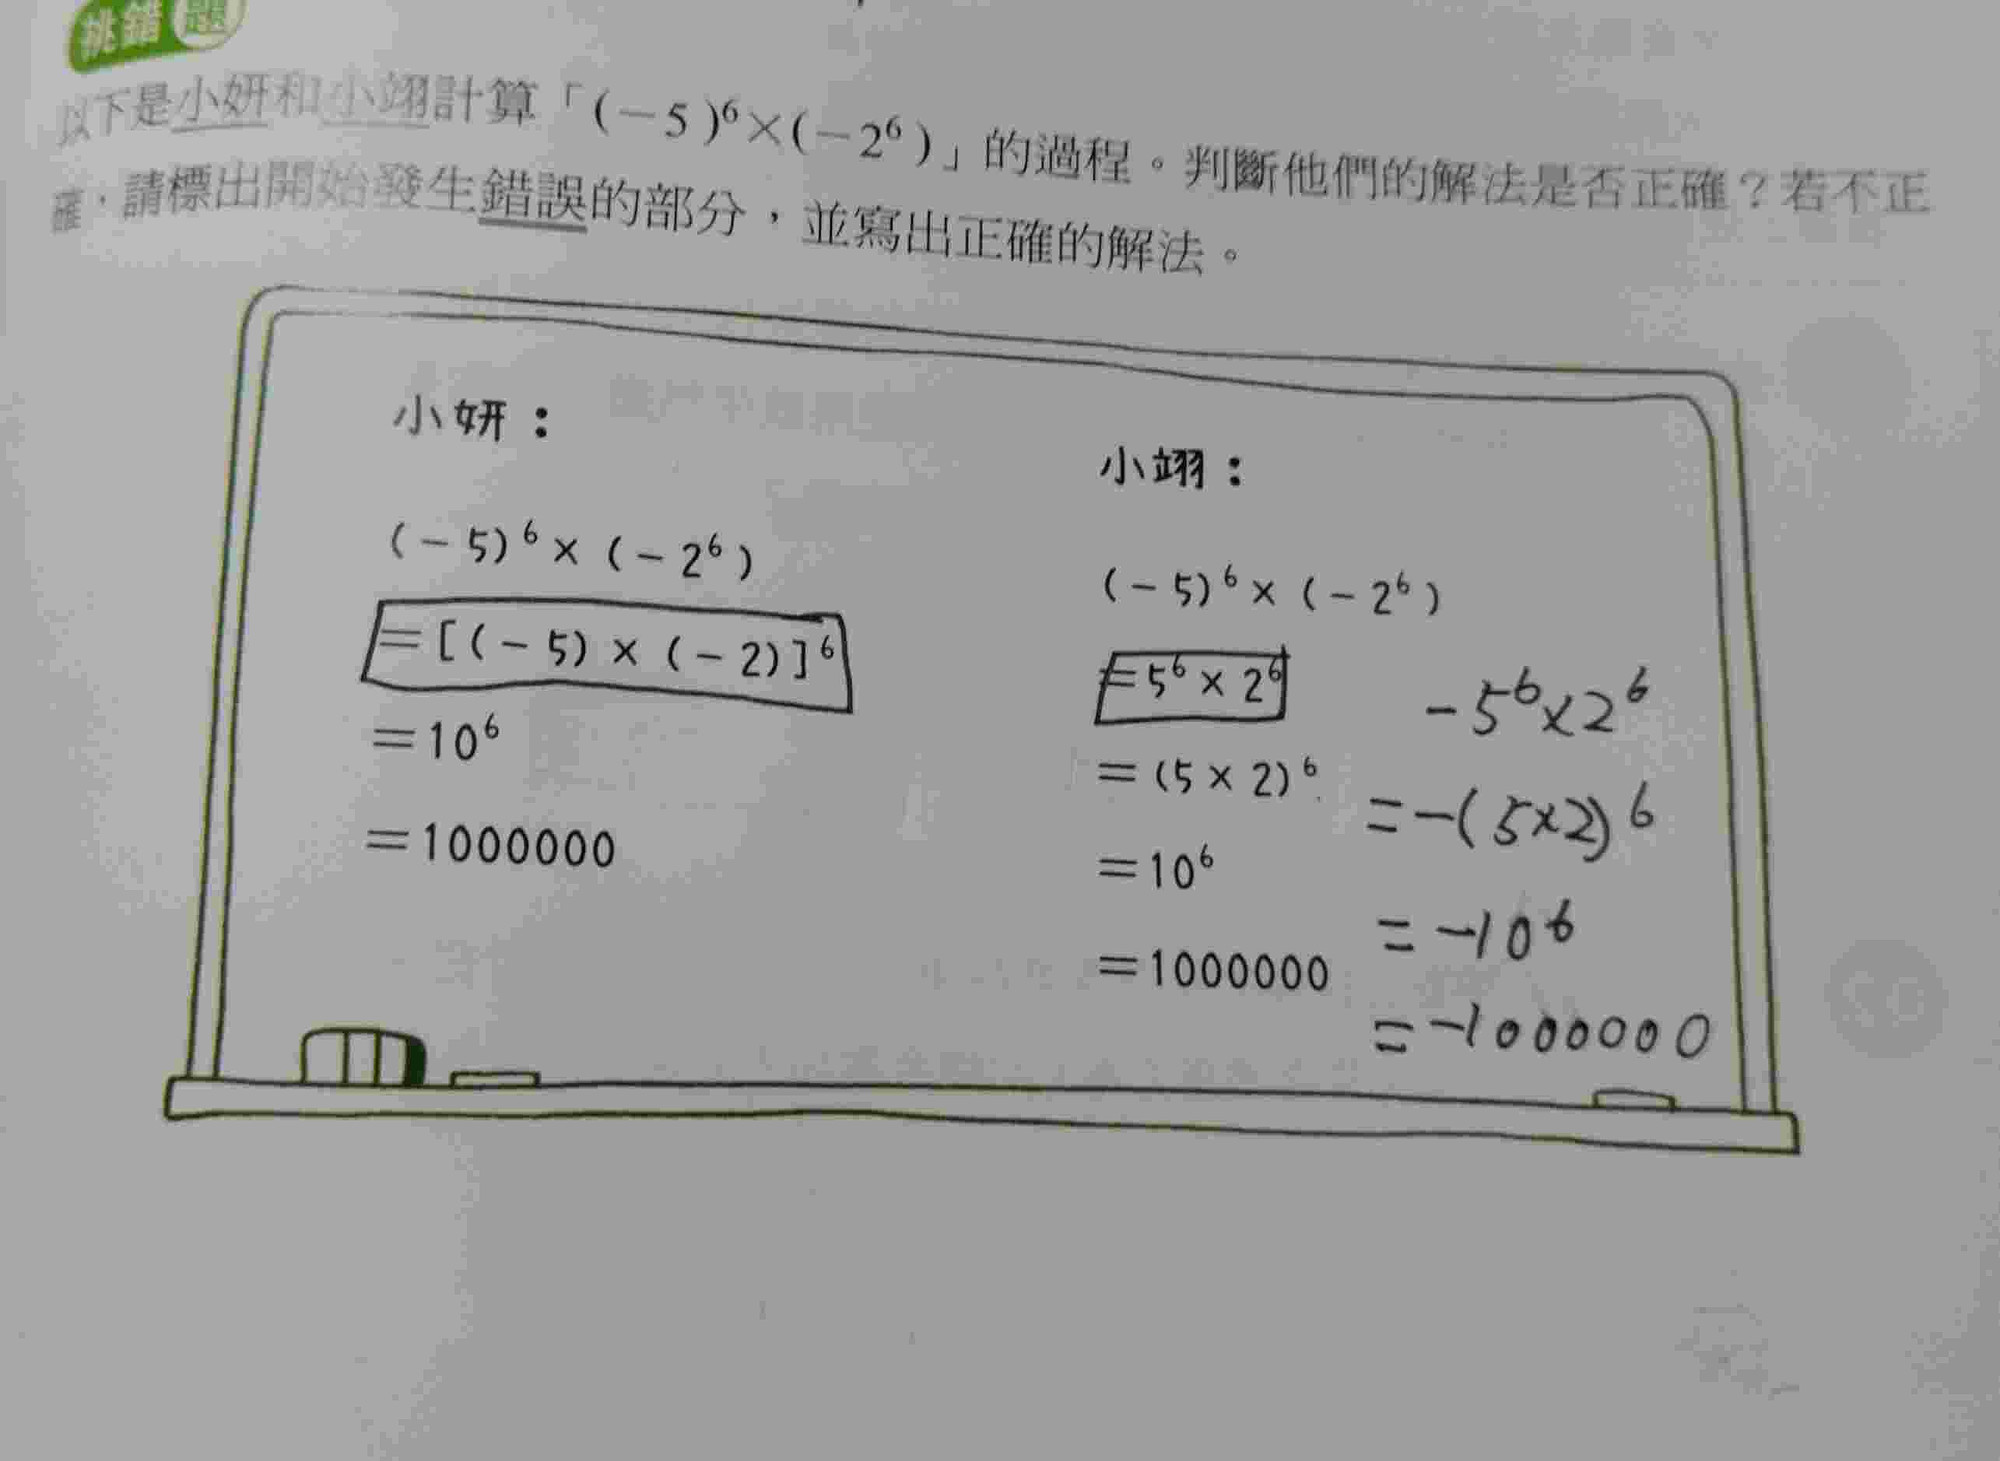 挑錯題
以下是小妍和小翊計算「(－5)⁶×(－2⁶)」的過程。判斷他們的解法是否正確？若不正
確，請標出開始發生錯誤的部分，並寫出正確的解法。
小妍：
(－5)⁶×(－2⁶)
＝[(－5)×(－2)]⁶
＝10⁶
＝1000000
小翊：
(－5)⁶×(－2⁶)
＝5⁶×2⁶
＝(5×2)⁶
＝10⁶
＝1000000
-5⁶×2⁶
=-(5×2)⁶
=-10⁶
=-1000000